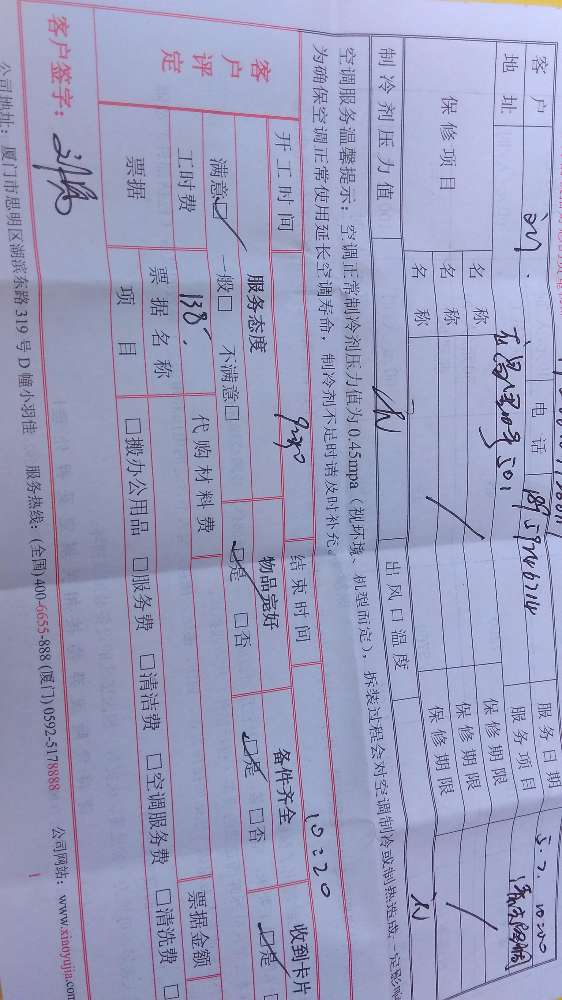 客户 刘 电话 服务日期 5.7. 10:00
地址 501 服务项目
保修项目 名称 保修期限
名称 保修期限
名称 保修期限
制冷剂压力值 出风口温度
空调服务温馨提示：空调正常制冷剂压力值为0.45mpa（视环境、机型而定），拆装过程会对空调制冷或制热造成一定影响
为确保空调正常使用延长空调寿命，制冷剂不足时请及时补充。
开工时间 结束时间 10:20
客户评定 服务态度 物品完好 备件齐全 收到卡片
满意☑ 一般□ 不满意□ ☑是 □否 ☑是 □否 ☑是
工时费 138 代购材料费
票据 票据名称 票据金额
项目 □搬办公用品 □服务费 □清洁费 □空调服务费 □清洗费
客户签字：
公司地址：厦门市思明区湖滨东路319号D幢小羽佳 服务热线：(全国)400-6655-888 (厦门)0592-5178888 公司网站：www.xiaoyujia.com